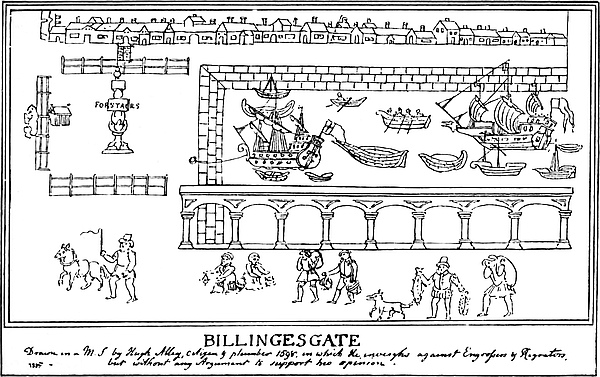 FORSTALRS
BILLINGESGATE
Drawn in a M.S by Hugh Alley, citizen & plumber 1598, in which he inveighs against Engrossers & Regrators,
but without any Argument to support his opinion.